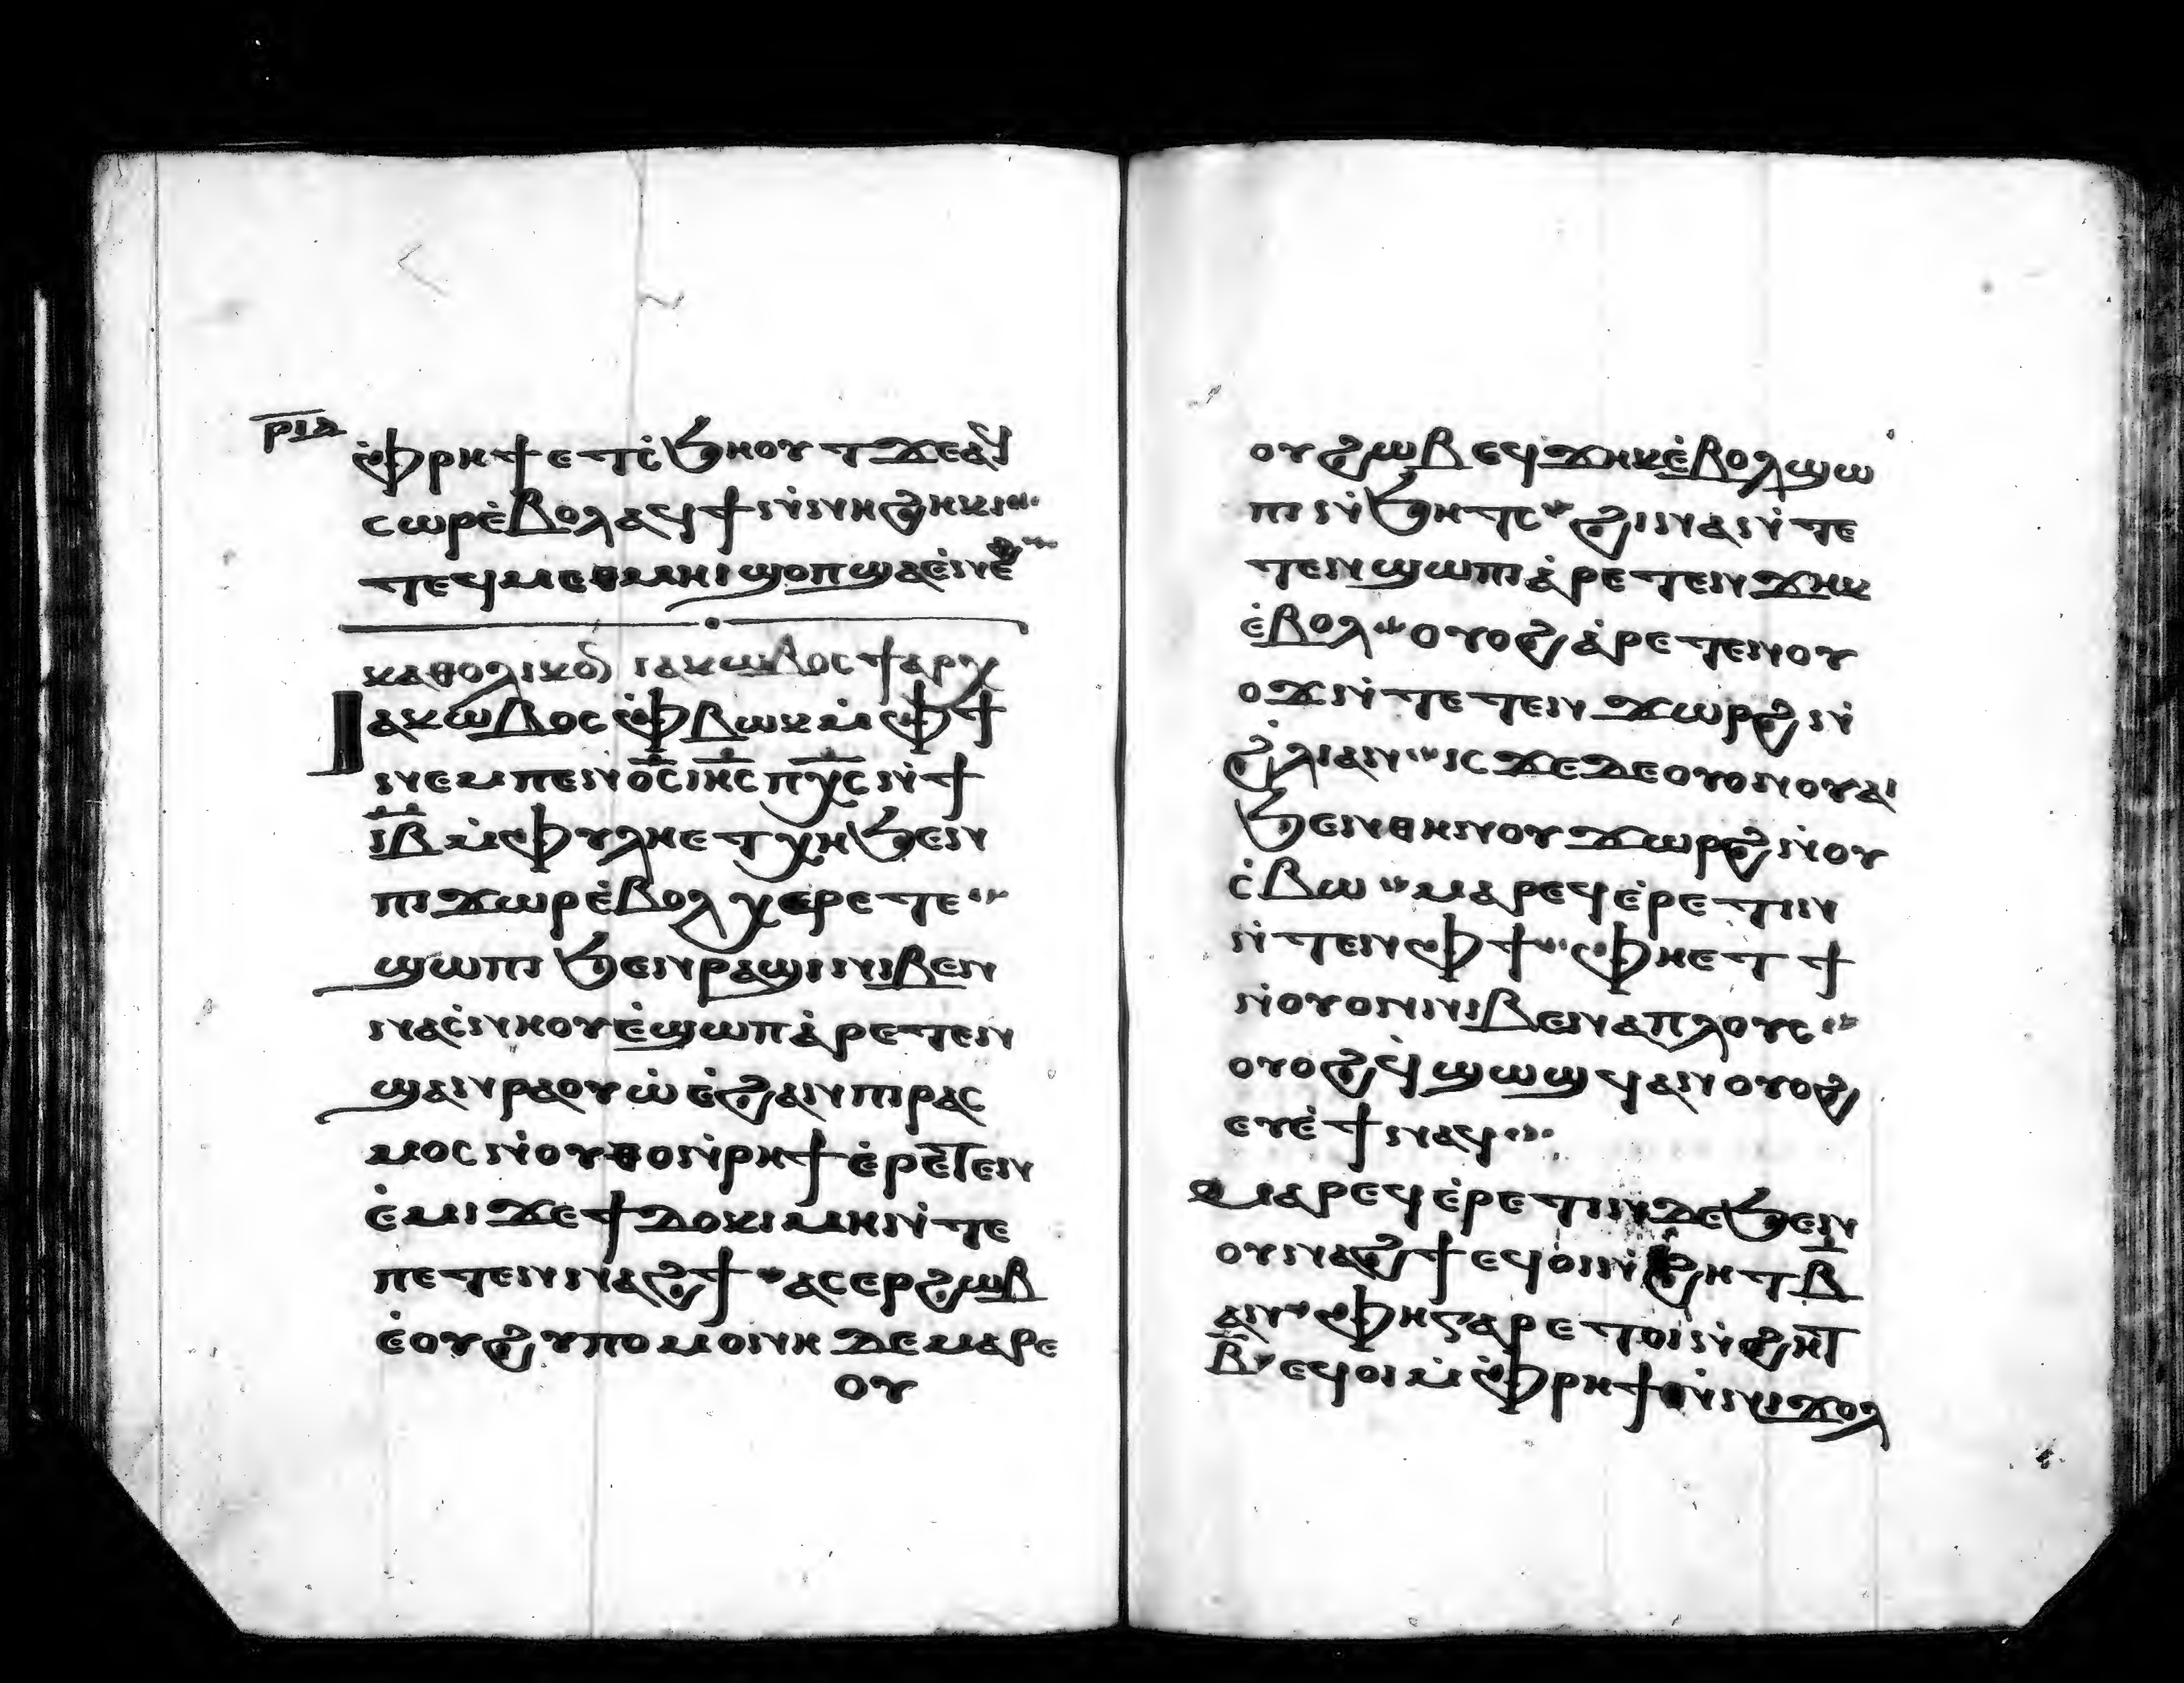 ⲣⲓⲇ
ⲙ̇ⲫⲣⲏϯ ⲉⲧⲥ̇ϧⲏⲟⲩⲧ ϫⲉ ⲁϥ
ⲥⲱⲣ ⲉ̇ⲃⲟⲗ ⲁϥϯ ⲛ̇ⲛⲓϩⲏⲕⲓ
ⲧⲉϥⲙⲉⲑⲙⲏⲓ ϣⲟⲡ ϣⲁ ⲉ̇ⲛⲉϩ
ⲕⲁⲑⲟⲗⲓⲕⲟⲛ ⲓⲁⲕⲱⲃⲟⲥ ϯⲁⲣⲭ
Ⲓⲁⲕⲱⲃⲟⲥ ⲫ̇ⲃⲱⲕ ⲙ̇ⲫϯ
ⲛⲉⲙ ⲡⲉⲛⲟ̅ⲥ̅ ⲓⲏ̅ⲥ̅ ⲡⲭ̅ⲥ̅ ⲛ̇ϯ
ⲓ̅ⲃ̅ ⲙ̇ⲫⲩⲗⲏ ⲉⲧⲭⲏ ϧⲉⲛ
ⲡⲓϫⲱⲣ ⲉ̇ⲃⲟⲗ ⲭⲉⲣⲉⲧⲉ
ϣⲱⲡⲓ ϧⲉⲛ ⲣⲁϣⲓ ⲛⲓⲃⲉⲛ
ⲛⲁⲥ̇ⲛⲏⲟⲩ ⲉ̇ϣⲱⲡ ⲁ̇ⲣⲉⲧⲉⲛ
ϣⲁⲛⲣⲁⲟⲩⲱ̇ ⲉ̇ϩⲁⲛⲡⲓⲣⲁⲥ
ⲙⲟⲥ ⲛ̇ⲟⲩⲑⲟ ⲛ̇ⲣⲏϯ ⲉ̇ⲣⲉⲧⲉⲛ
ⲉ̇ⲙⲓ ϫⲉ ϯⲇⲟⲕⲓⲙⲏ ⲛ̇ⲧⲉ
ⲡⲉⲧⲉⲛⲛⲁϩϯ ⲁⲥⲉⲣϩⲱⲃ
ⲉ̇ⲟⲩϩⲩⲡⲟⲙⲟⲛⲏ ⲇⲉ ⲙⲁⲣⲉ
ⲟⲩ
ⲟⲩϩⲱⲃ ⲉϥϫⲏⲕ ⲉ̇ⲃⲟⲗ ϣⲱ
ⲡⲓ ⲛ̇ϧⲏⲧⲥ ϩⲓⲛⲁ ⲛ̇ⲧⲉ
ⲧⲉⲛϣⲱⲡⲓ ⲁ̇ⲣⲉⲧⲉⲛϫⲏⲕ
ⲉ̇ⲃⲟⲗ ⲟⲩⲟϩ ⲁ̇ⲣⲉⲧⲉⲛⲟⲩ
ⲟϫ ⲛ̇ⲧⲉⲧⲉⲛϫⲱⲣϩ ⲛ̇
ϩ̇ⲗⲓ ⲁⲛ ⲓⲥϫⲉ ⲇⲉ ⲟⲩⲟⲛ ⲟⲩⲁⲓ
ϧⲉⲛ ⲑⲏⲛⲟⲩ ϫⲱⲣϩ ⲛ̇ⲟⲩ
ⲥ̇ⲃⲱ ⲙⲁⲣⲉϥⲉ̇ⲣⲉⲧⲓⲛ
ⲛ̇ⲧⲉⲛ ⲫϯ ⲫⲏⲉⲧϯ
ⲛ̇ⲟⲩⲟⲛ ⲛⲓⲃⲉⲛ ⲁⲡⲗⲟⲩⲥ
ⲟⲩⲟϩ ϥ̇ϣⲱϣϥ ⲁⲛ ⲟⲩⲟϩ
ⲉⲩⲉ̇ϯ ⲛⲁϥ
Ⲙⲁⲣⲉϥⲉ̇ⲣⲉⲧⲓⲛ ⲇⲉ ϧⲉⲛ
ⲟⲩⲛⲁϩϯ ⲉϥⲟⲓ ⲛ̇ϩⲏⲧ ⲃ̅
ⲁⲛ ⲫⲏ ⲅⲁⲣ ⲉⲧⲟⲓ ⲛ̇ϩⲏⲧ
ⲃ̅ ⲉϥⲟⲓ ⲙ̇ⲫⲣⲏϯ ⲛ̇ⲛⲓϫⲟⲗ